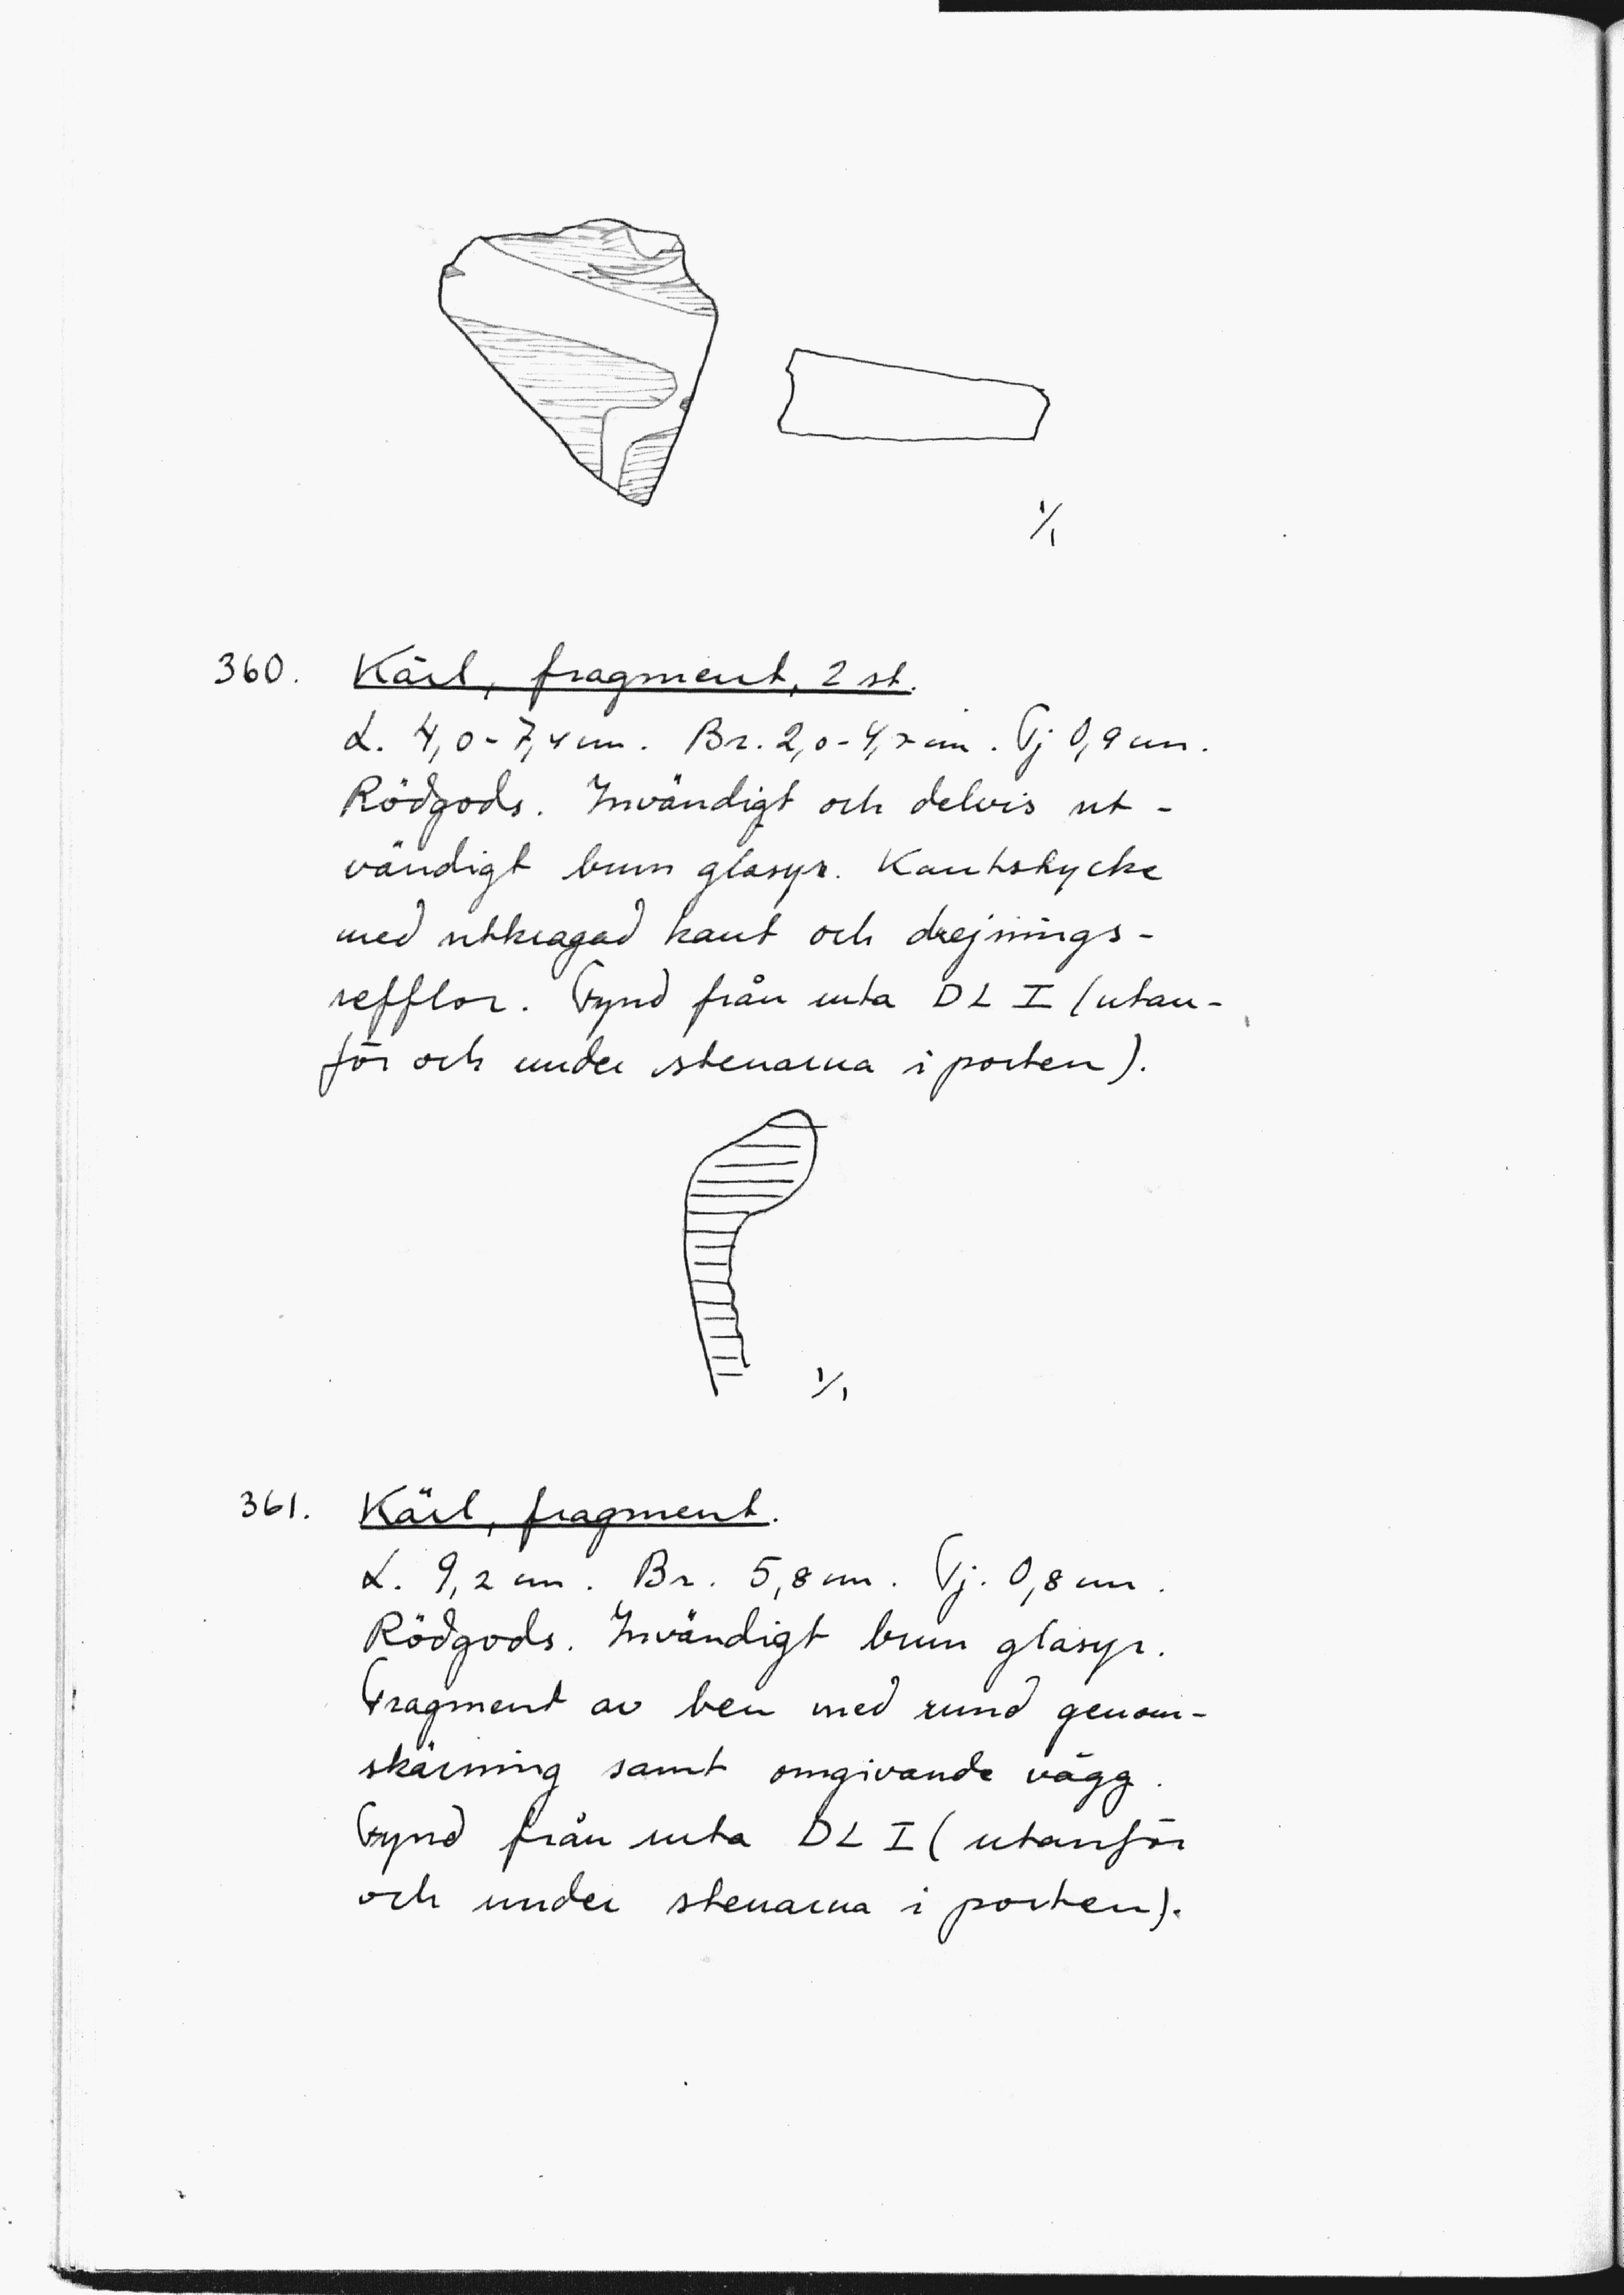 1/1
360. Kärl, fragment, 2 st.
L. 4,0-7,4 cm. Br. 2,0-4,7 cm. Tj 0,9 cm.
Rödgods. Invändigt och delvis ut-
vändigt brun glasyr. Kantstycke
med utkragad kant och drejnings-
refflor. Fynd från ruta DL I (utan-
för och under stenarna i porten).
1/1
361. Kärl, fragment.
L. 9,2 cm. Br. 5,8 cm. Tj. 0,8 cm.
Rödgods. Invändigt brun glasyr.
Fragment av ben med rund genom-
skärning samt omgivande vägg.
Fynd från ruta DL I (utanför
och under stenarna i porten).